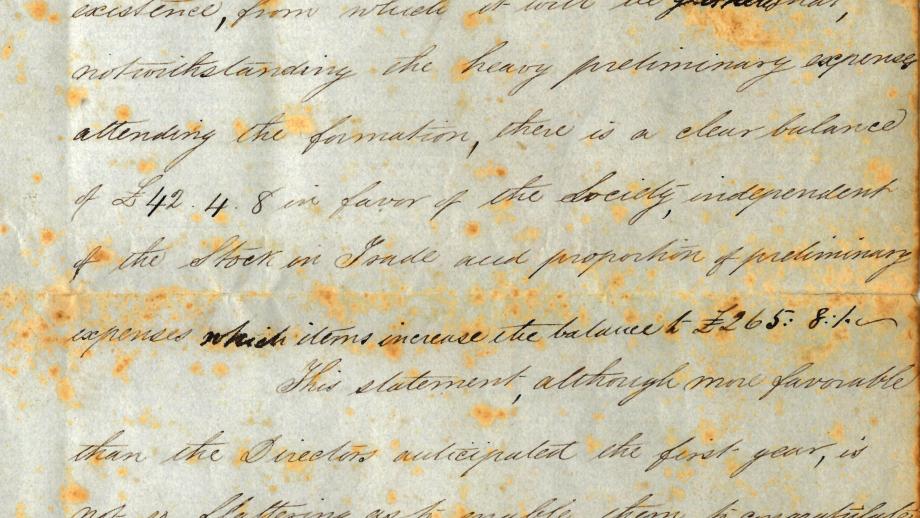 existence, from which it will be gathered that,
notwithstanding the heavy preliminary expenses
attending the formation, there is a clear balance
of £42.4.8 in favor of the Society, independent
of the Stock in Trade and proportion of preliminary
expenses which items increase the balance to £265:8:1.
This statement, although more favorable
than the Directors anticipated the first year, is
not so flattering as to enable them to congratulate